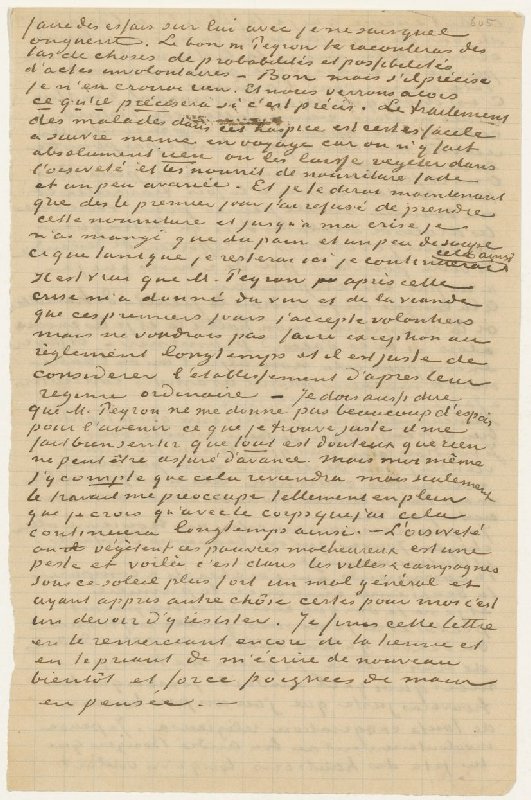 faire des essais sur lui avec je ne sais quel
onguent. Le bon M. Peyron te racontera des
tas de choses de probabilités et possibilités
d'actes involontaires – Bon mais s'il précise
je n'en croirai rien. Et nous verrons alors
ce qu'il précisera si c'est précis. Le traitement
des malades dans cet hospice est certes facile
a suivre même en voyage car on n'y fait
absolument rien on les laisse vegeter dans
l'oisiveté et les nourrit de nourriture fade
et un peu avariée. Et je te dirai maintenant
que dès le premier jour j'ai refusé de prendre
cette nourriture et jusqu'à ma crise je
n'ai mangé que du pain et un peu de soupe
ce que tant que je resterai ici je continuerai cela ainsi
Il est vrai que M. Peyron après cette
crise m'a donné du vin et de la viande
que ces premiers jours j'accepte volontiers
mais ne voudrais pas faire exception au
règlement longtemps et il est juste de
considerer l'établissement d'après leur
regime ordinaire – Je dois aussi dire
que M. Peyron ne me donne pas beaucoup d'espoir
pour l'avenir ce que je trouve juste il me
fait bien sentir que tout est douteux que rien
ne peut être assuré d'avance. mais moi même
j'y compte que cela reviendra mais seulement
le travail me préoccupe tellement en plein
que je crois qu'avec le corps que j'ai cela
continuera longtemps ainsi. – L'oisiveté
où végètent ces pauvres malheureux est une
peste et voilà c'est dans les villes & campagnes
sous ce soleil plus fort un mal général et
ayant appris autre chôse certes pour moi c'est
un devoir d'y résister. Je finis cette lettre
en te remerciant encore de la tienne et
en te priant de m'écrire de nouveau
bientôt et force poignées de main
en pensée. –